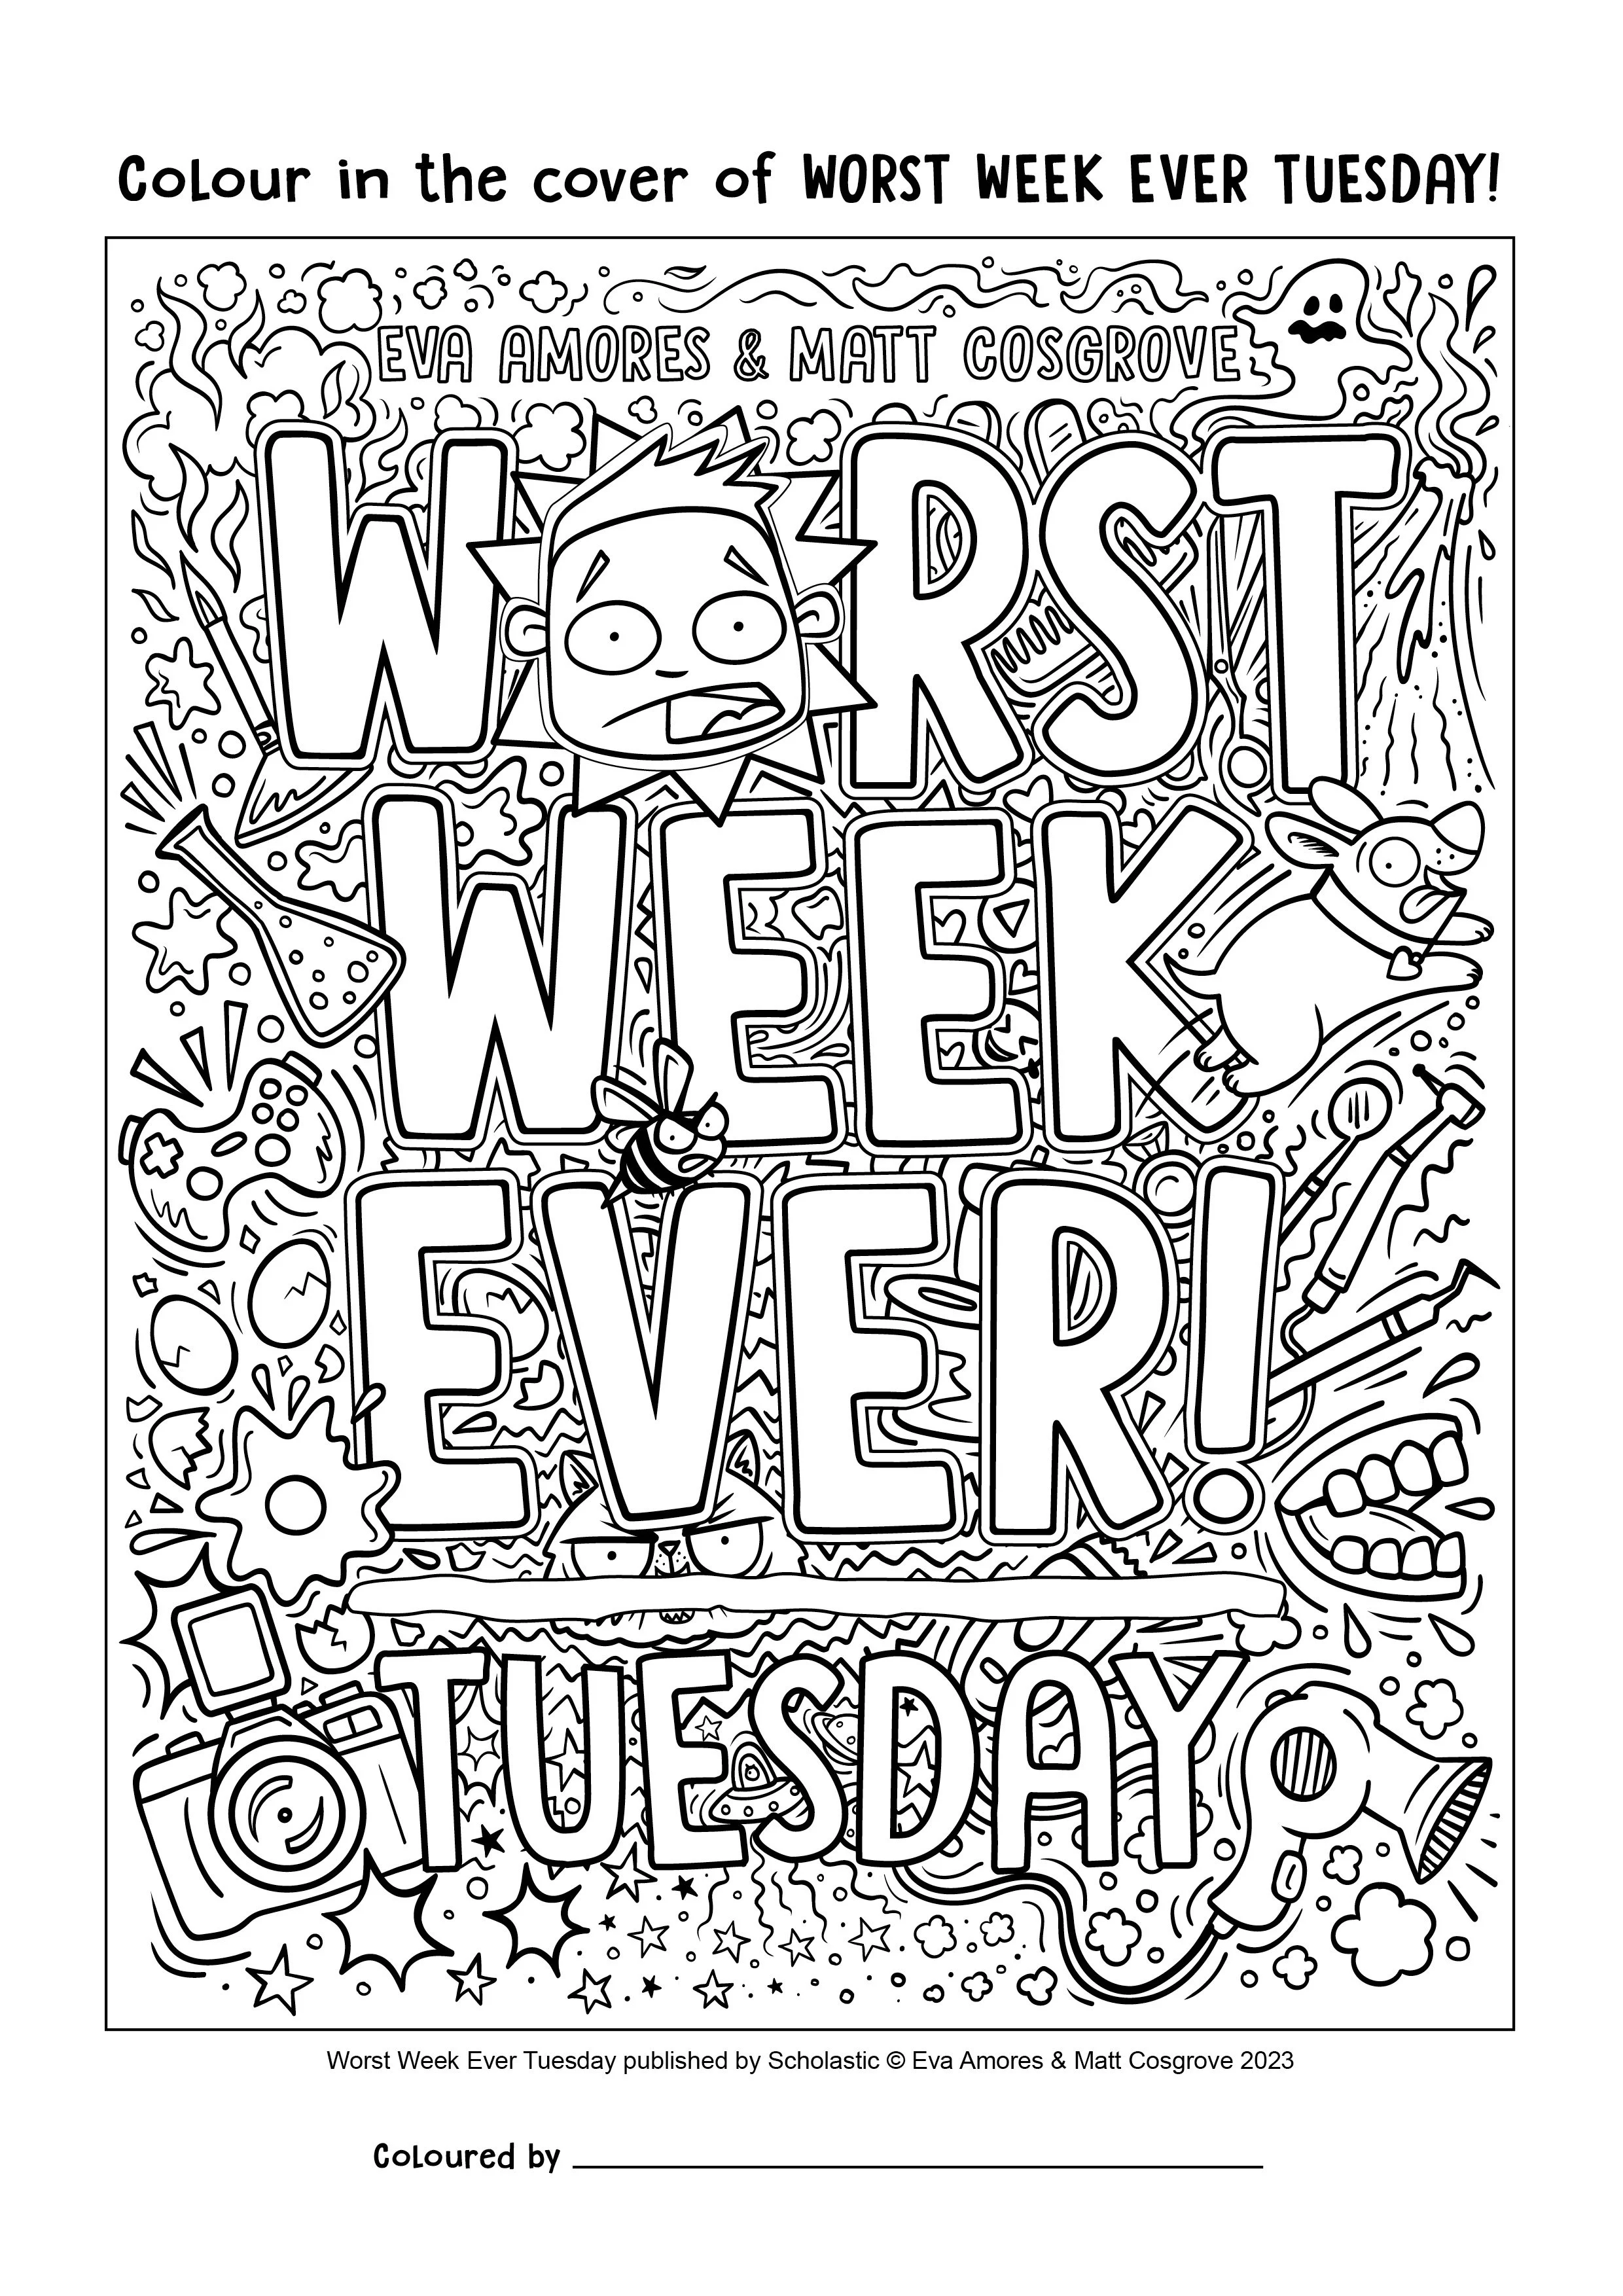 Colour in the cover of WORST WEEK EVER TUESDAY!
EVA AMORES & MATT COSGROVE
WORST
WEEK
EVER!
TUESDAY
Worst Week Ever Tuesday published by Scholastic © Eva Amores & Matt Cosgrove 2023
Coloured by